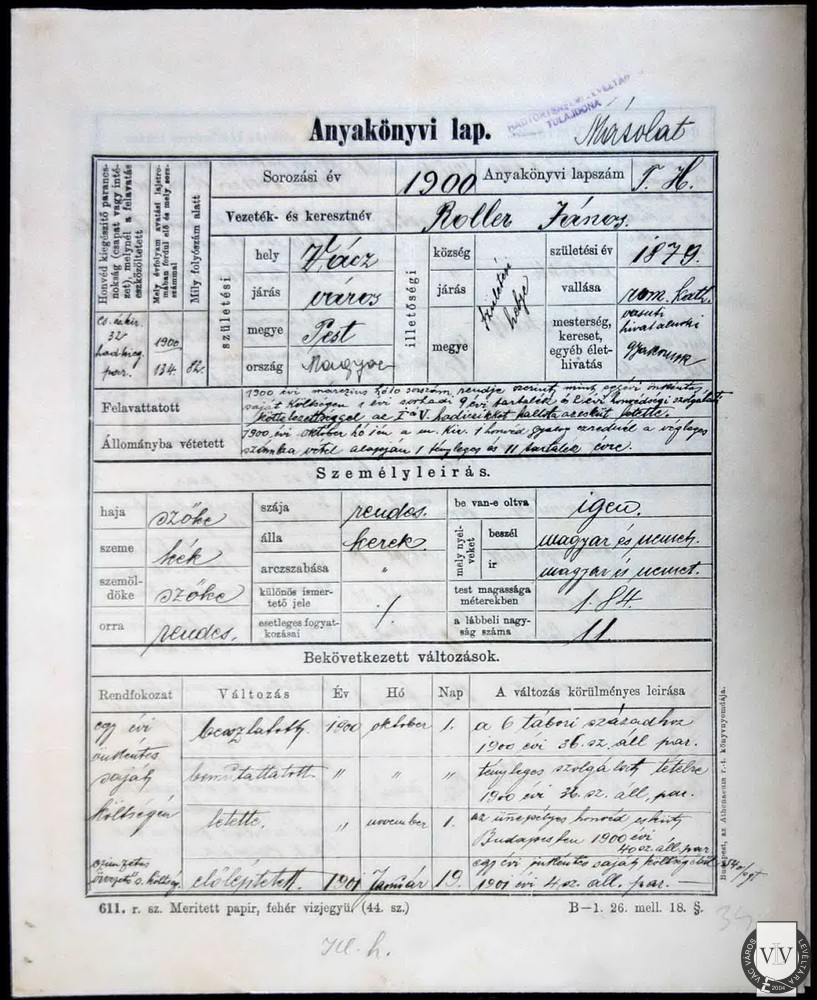 HADTÖRTÉNELMI LEVÉLTÁR
TULAJDONA
Anyakönyvi lap.
Másolat
Honvéd kiegészitő parancs-
nokság (csapat vagy inté-
zet), melynél a felavatás
eszközöltetett
Mely évfolyam avatási lajstro-
mában fordul elő és mely sors-
számmal
Mily folyószám alatt
Sorozási év
1900
Anyakönyvi lapszám
T. H.
Vezeték- és keresztnév
Roller János.
születési
hely
Vácz
járás
város
megye
Pest
ország
Magyar
illetőségi
község
járás
megye
születési
helye
születési év
1879.
vallása
rom. kath.
mesterség,
kereset,
egyéb élet-
hivatás
vasuti
hivatalnoki
gyakornok
32
hadkieg.
par.
1900
134.
82.
Felavattatott
1900 évi márczius hó 10 sorszám rendje szerint mint egyévi önkéntes
saját költségén 1 évi sorhadi 9 évi tartalék és 2 évi honvédségi szolgálati
kötelezettséggel az I-V. hadicikket
Állományba vétetett
1900 évi október hó 1én a m. kir. 1 honvéd gyalog ezrednél a végleges
számba vétel alapján 1 tényleges és 11 tartalék évre.
Személyleirás.
haja
szőke
szeme
kék
szemöl-
döke
szőke
orra
rendes.
szája
rendes.
álla
kerek.
arczszabása
"
különös ismer-
tető jele
esetleges fogyat-
kozásai
·/·
be van-e oltva
igen.
mely nyel-
veket
beszél
magyar és német.
ir
magyar és német.
test magassága
méterekben
1.84.
a lábbeli nagy-
ság száma
11.
Bekövetkezett változások.
Rendfokozat
Változás
Év
Hó
Nap
A változás körülményes leirása
egy évi
önkéntes
saját
költségén
beosztatott.
1900
október
1.
a 6 tábori századhoz
1900 évi 36. sz. áll. par.
bemutattatott
"
"
"
tényleges szolgálat tételre
1900 évi 36. sz. áll. par.
letette.
"
november
1.
az ünnepélyes honvéd esküt
Budapesten 1900 évi
40 sz. áll. par.
czimzetes
őrvezető s. költség.
előléptetett.
1901
Január
19.
egy évi önkéntes saját költségén
1901 évi 4 sz. áll. par.
611. r. sz. Meritett papir, fehér vizjegyü. (44. sz.)
B—1. 26. mell. 18. §.
Budapest, az Athenaeum r.-t. könyvnyomdája.
VÁC VÁROS LEVÉLTÁRA
VL
2004